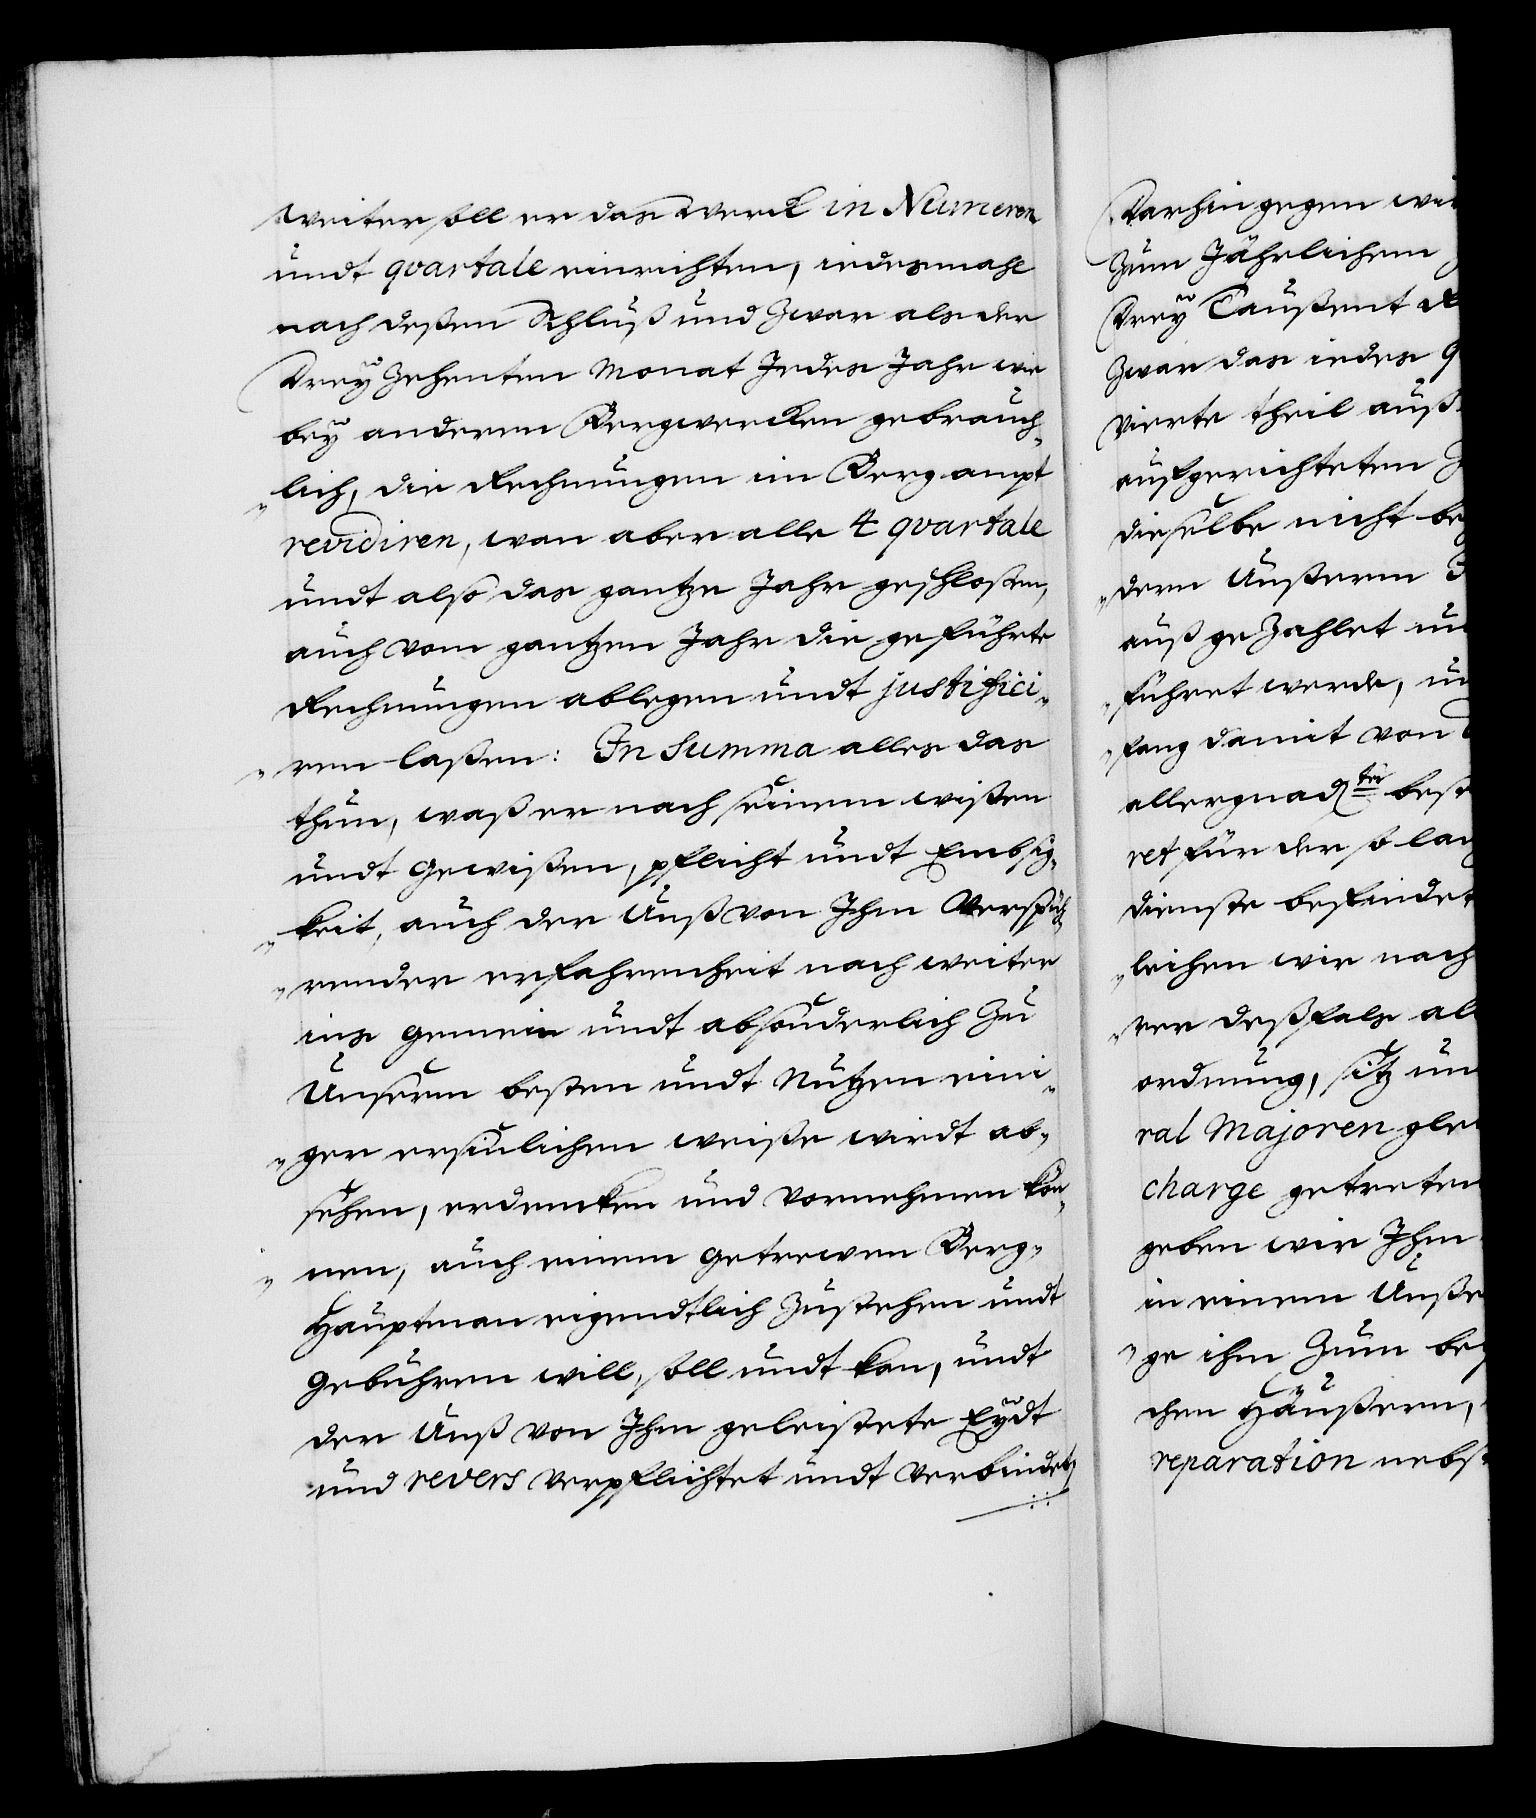 weiter soll er das werck in Numeren
undt qvartale einrichten, iedesmahl
nach deßen Schluß und Zwar als der
Dreÿ Zehenten Monat Jedes Jahr wie
beÿ anderen Bergwercken gebräuch-
lich, die Rechnungen im Bergampt
revidiren, wan aber alle 4 qvartale
undt also das gantze Jahr geschloßen,
auch vom gantzen Jahr die geführte
Rechnungen ablegen undt justifici-
ren laßen: In Summa alles das
thun, waß er nach seinem wißen
undt Gewißen, pflicht undt Embsig-
keit, auch der Unß von Ihm Verspüh-
render erfahrenheit nach weiter
ins gemein undt absonderlich Zu
Unserm besten undt Nutzen eini-
ger ersinlichen weiße wirdt ab-
sehen, erdencken und vornehmen kön-
nen, auch einem getrewen Berg-
Hauptman eigendtlich Zustehen undt
Gebühren will, soll undt kan, undt
der Unß von Ihm geleistete Eÿdt
und revers verpflichtet undt verbindet,
Darhingegen wi
Zum Jährlichem
Dreÿ Taußent R
Zwar das iedes q
Vierte theil auß
aufgerichteten Z
dieselbe nicht be
dern Unßerm B
auß geZahlet un
führet werde, un
fang damit von
allergnädter best
ret für der so lan
dienste befindet
leihen wir nach
rer deßfals al
ordnung, sitz un
ral Majoren gle
charge getreten
geben wir Ihm
in einem Unße
ge ihm Zum be
chen Häußern,
reparation nebst